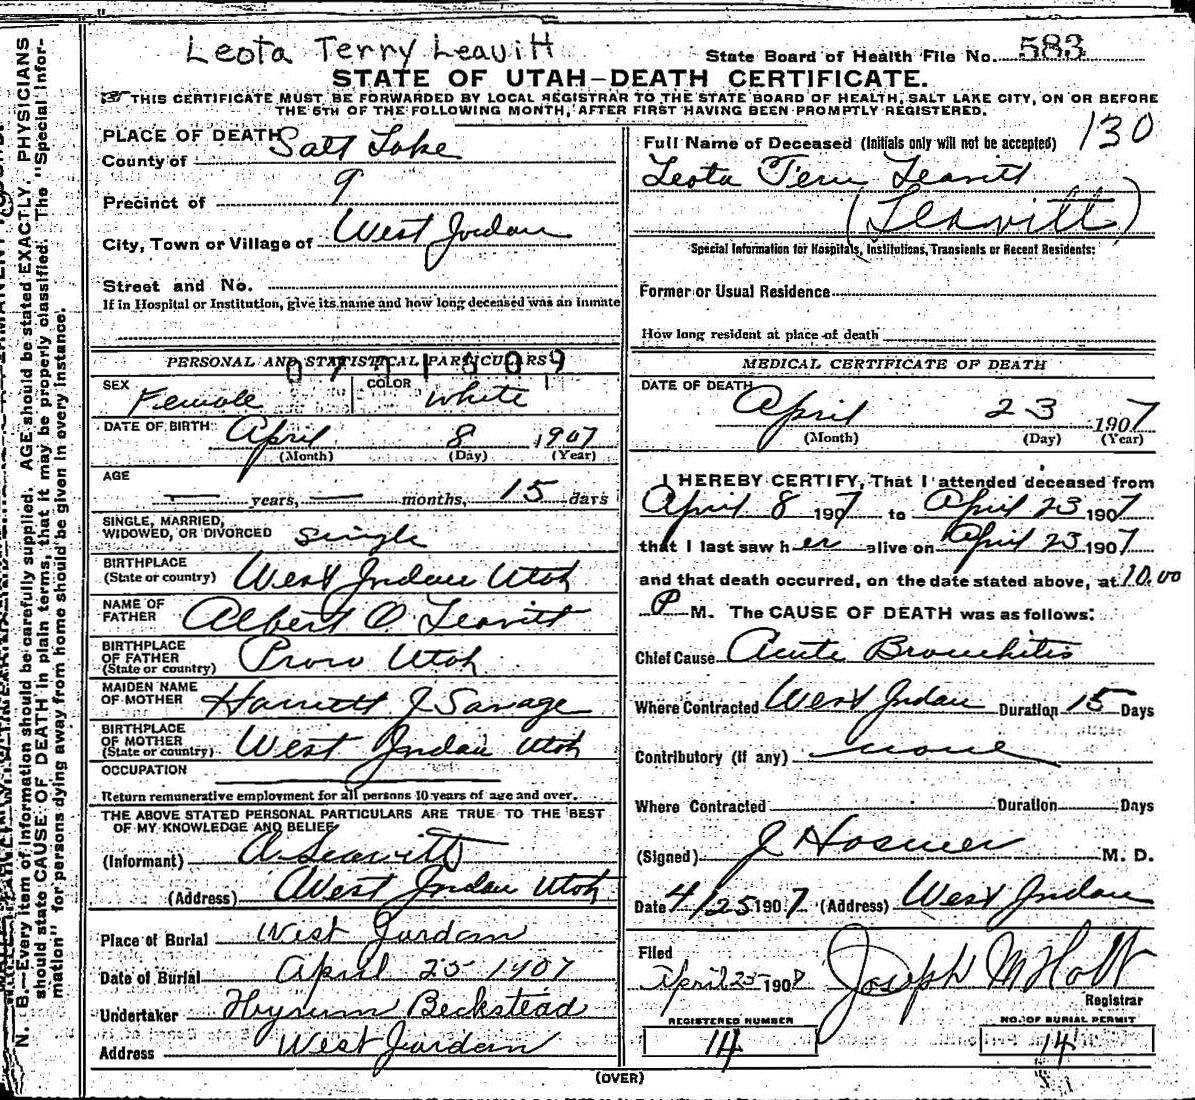 Leota Terry Leavitt
State Board of Health File No. 583
STATE OF UTAH—DEATH CERTIFICATE.
THIS CERTIFICATE MUST BE FORWARDED BY LOCAL REGISTRAR TO THE STATE BOARD OF HEALTH, SALT LAKE CITY, ON OR BEFORE
THE 5TH OF THE FOLLOWING MONTH, AFTER FIRST HAVING BEEN PROMPTLY REGISTERED.
N. B.—Every item of information should be carefully supplied. AGE should be stated EXACTLY. PHYSICIANS
should state CAUSE OF DEATH in plain terms, that it may be properly classified. The "Special Infor-
mation" for persons dying away from home should be given in every instance.
PLACE OF DEATH
County of Salt Lake
Precinct of 9
City, Town or Village of West Jordan
Street and No.
If in Hospital or Institution, give its name and how long deceased was an inmate
PERSONAL AND STATISTICAL PARTICULARS
SEX Female COLOR White
DATE OF BIRTH: April 8 1907
(Month) (Day) (Year)
AGE
— years, — months, 15 days
SINGLE, MARRIED,
WIDOWED, OR DIVORCED Single
BIRTHPLACE
(State or country) West Jordan Utah
NAME OF
FATHER Albert O. Leavitt
BIRTHPLACE
OF FATHER
(State or country) Provo Utah
MAIDEN NAME
OF MOTHER Harriett J Savage
BIRTHPLACE
OF MOTHER
(State or country) West Jordan Utah
OCCUPATION
Return remunerative employment for all persons 10 years of age and over.
THE ABOVE STATED PERSONAL PARTICULARS ARE TRUE TO THE BEST
OF MY KNOWLEDGE AND BELIEF
(Informant) A Leavitt
(Address) West Jordan Utah
Place of Burial West Jordan
Date of Burial April 25 1907
Undertaker Hyrum Beckstead
Address West Jordan
130
Full Name of Deceased (Initials only will not be accepted)
Leota Terry Leavitt
(Leavitt)
Special Information for Hospitals, Institutions, Transients or Recent Residents:
Former or Usual Residence
How long resident at place of death
MEDICAL CERTIFICATE OF DEATH
DATE OF DEATH
April 23 1907
(Month) (Day) (Year)
I HEREBY CERTIFY, That I attended deceased from
April 8 1907 to April 23 1907
that I last saw her alive on April 23 1907
and that death occurred, on the date stated above, at 10.00
P M. The CAUSE OF DEATH was as follows:
Chief Cause Acute Bronchitis
Where Contracted West Jordan Duration 15 Days
Contributory (if any) none
Where Contracted Duration Days
(Signed) J Hosmer M. D.
Date 4/25 1907 (Address) West Jordan
Filed
April 25 1907 Joseph M Holt
Registrar
REGISTERED NUMBER
14
NO. OF BURIAL PERMIT
14
(OVER)